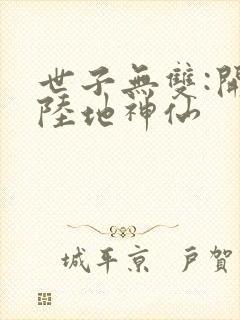 世子無雙:
陸地神仙
城平京 戶賀